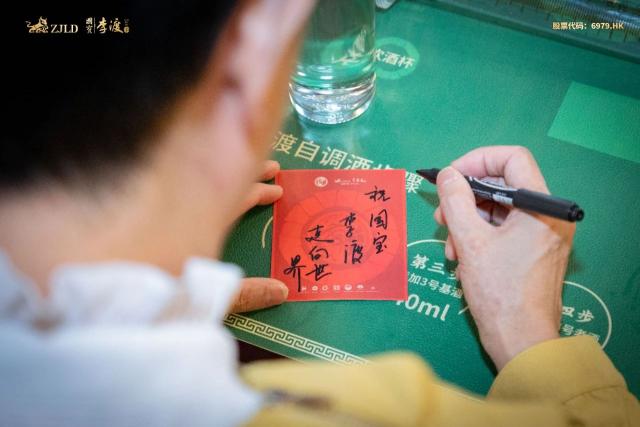 ZJLD
國寶李渡
股票代码：6979.HK
饮酒杯
渡自调酒步骤
祝国宝
李渡
走向世
界
第三
加3号基酒
40ml
四步
号